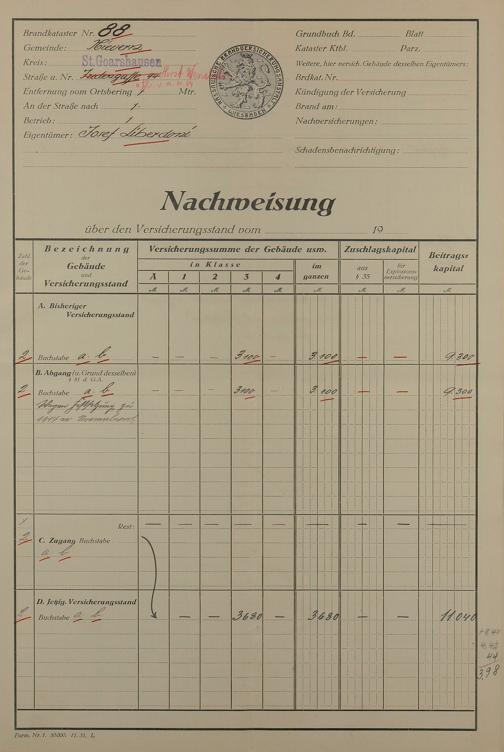 Brandkataster Nr. 88
Gemeinde: Kievern
Kreis: St.Goarshausen
Straße u. Nr.
Entfernung vom Ortsbering / Mtr.
An der Straße nach /
Betrieb: /
Eigentümer: Josef Liberdoni
Grundbuch Bd. Blatt
Kataster Ktbl. Parz.
Weitere, hier nersich. Gebäude desselben Eigentümers:
Brdkat. Nr.
Kündigung der Versicherung
Brand am:
Nachversicherungen:
Schadensbenachrichtigung:
NASSAUISCHE BRANDVERSICHERUNGSANSTALT
WIESBADEN
Nachweisung
über den Versicherungsstand vom 19
Zahl der Gebäude
Bezeichnung der Gebäude und Versicherungsstand
Versicherungssumme der Gebäude usw.
in Klasse
A 1 2 3 4
im ganzen
Zuschlagskapital
aus § 35
für Explosionsversicherung
Beitragskapital
M. M. M. M. M. M. M. M. M.
A. Bisheriger Versicherungsstand
2 Buchstabe a b – – – 3100 – 3100 – – 9300
B. Abgang (u. Grund desselben)
§ 31 d. G.A.
2 Buchstabe a b – – – 3100 – 3100 – – 9300
Wegen
1 Rest: — — — — — — — — —
2 C. Zugang Buchstabe
a b
D. Jetzig. Versicherungsstand
2 Buchstabe a b – – 3680 – 3680 – – 11040
44
3,98
Form. Nr. 1. 30000. 11. 31. L.